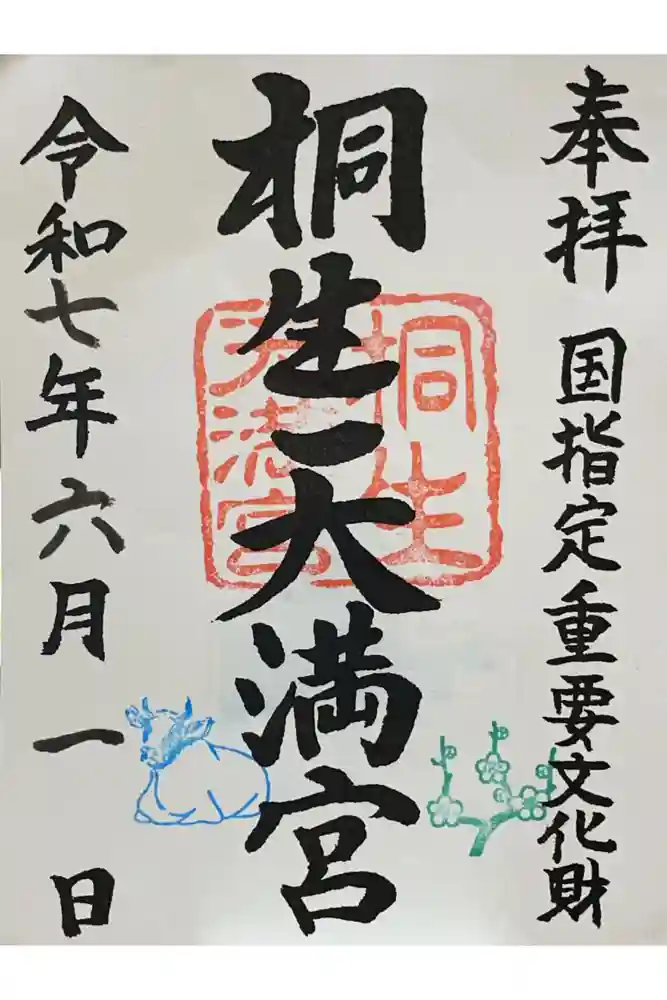 奉拝 国指定重要文化財
桐生天満宮
令和七年六月一日
桐生
天满宮